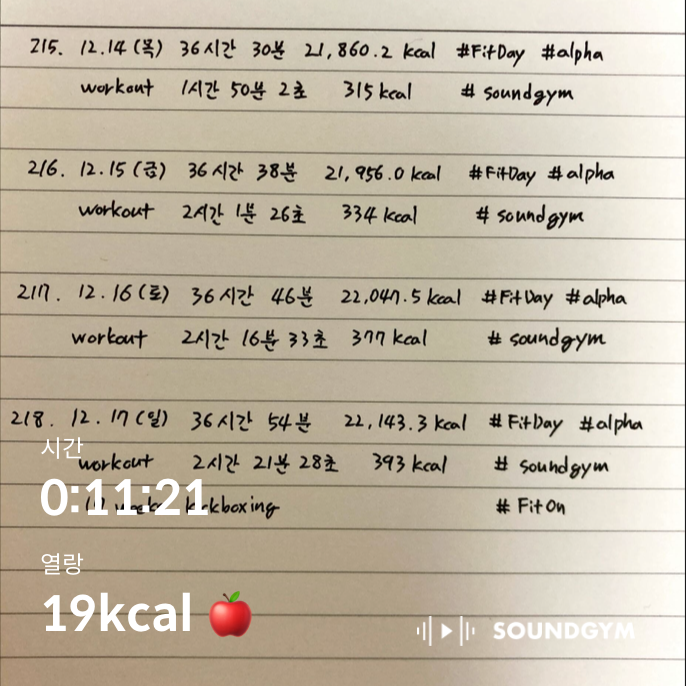 215. 12.14 (목) 36시간 30분 21,860.2 kcal #FitDay #alpha
workout 1시간 50분 2초 315 kcal # soundgym
216. 12.15 (금) 36시간 38분 21,956.0 kcal #FitDay #alpha
workout 2시간 1분 26초 334 kcal # soundgym
217. 12.16 (토) 36시간 46분 22,047.5 kcal #FitDay #alpha
workout 2시간 16분 33초 377 kcal # soundgym
218. 12.17 (일) 36시간 54분 22,143.3 kcal #FitDay #alpha
시간
workout 2시간 21분 28초 393 kcal # soundgym
0:11:21
kickboxing # FitOn
열량
19kcal
SOUNDGYM